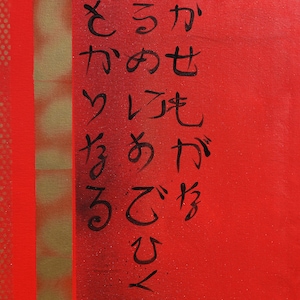 かせもがな
るのにあでひく
とかりなる